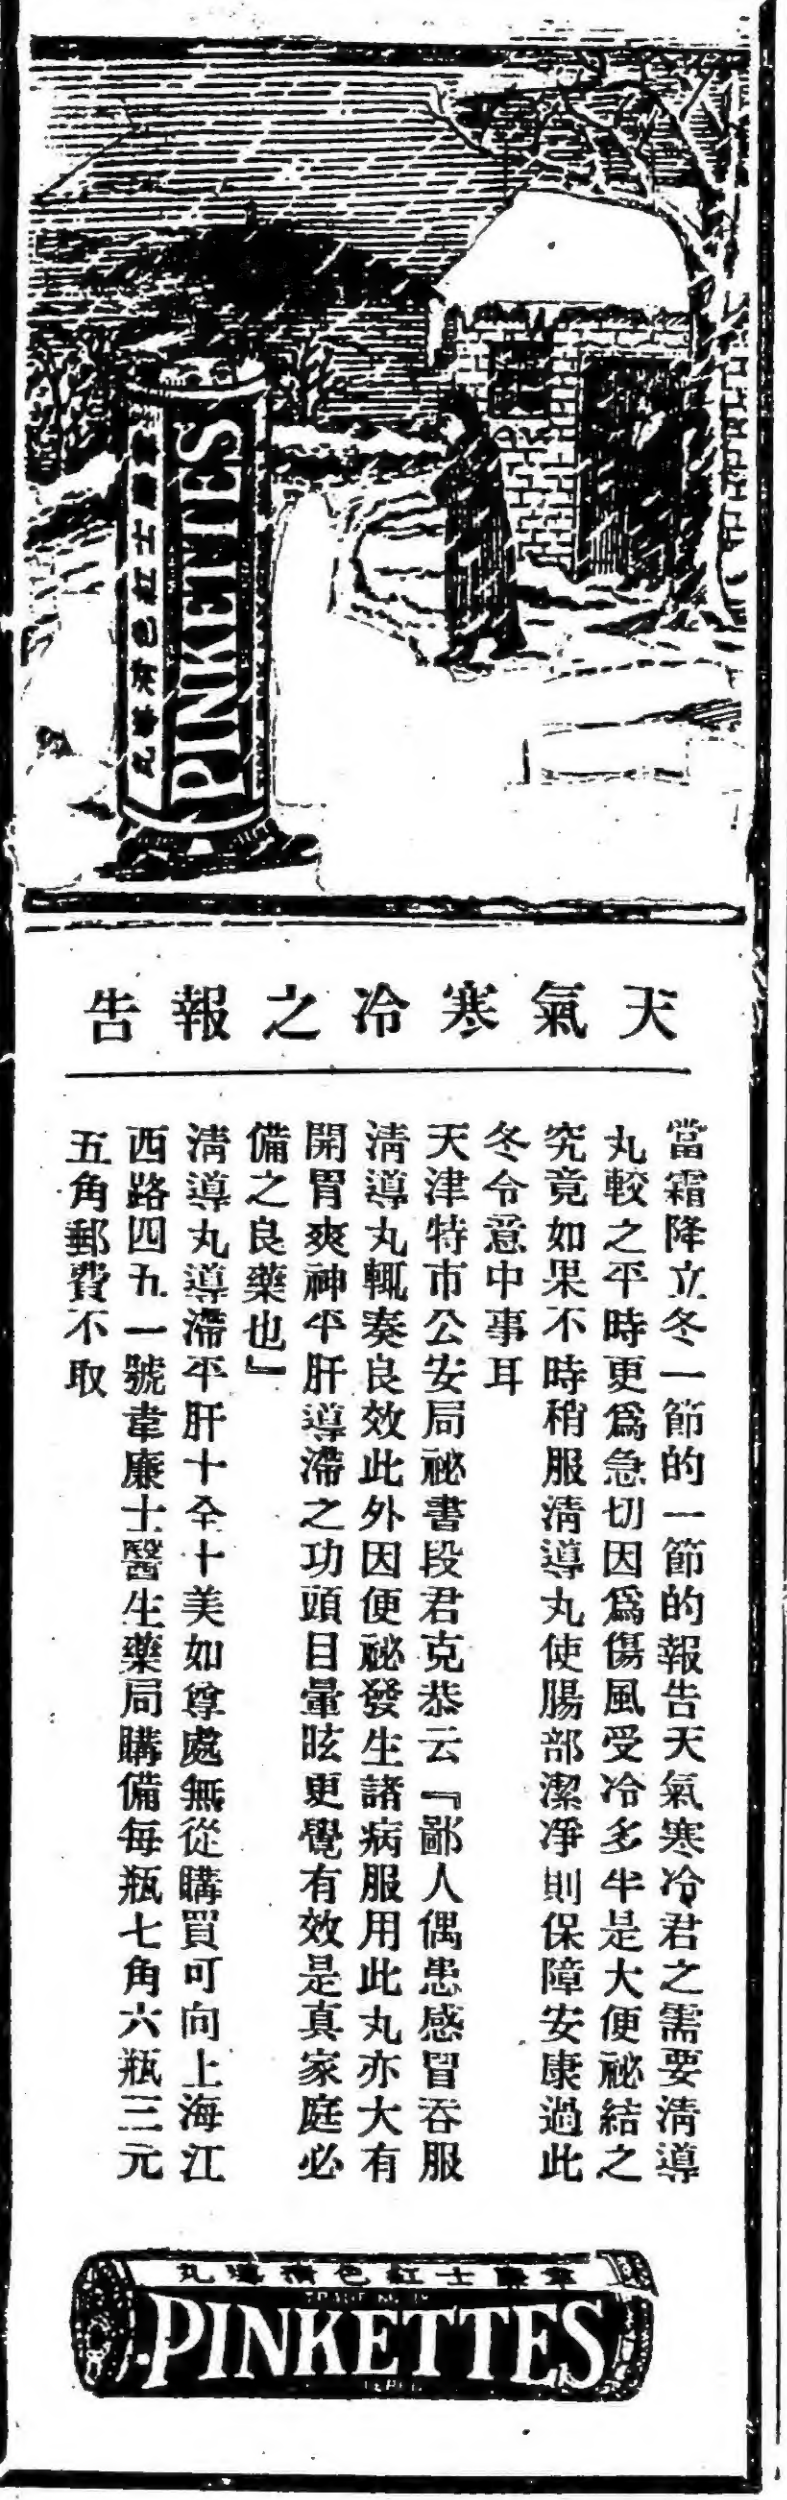 PINKETTES
韋廉士紅色清導丸
天氣寒冷之報告
當霜降立冬一節的一節的報告天氣寒冷君之需要清導
丸較之平時更爲急切因爲傷風受冷多半是大便祕結之
究竟如果不時稍服清導丸使腸部潔凈則保障安康過此
冬令意中事耳
天津特市公安局祕書段君克恭云『鄙人偶患感冒吞服
清導丸輒奏良效此外因便祕發生諸病服用此丸亦大有
開胃爽神平肝導滯之功頭目暈眩更覺有效是真家庭必
備之良藥也』
清導丸導滯平肝十全十美如尊處無從購買可向上海江
西路四五一號韋廉士醫生藥局購備每瓶七角六瓶三元
五角郵費不取
韋廉士紅色清導丸
PINKETTES